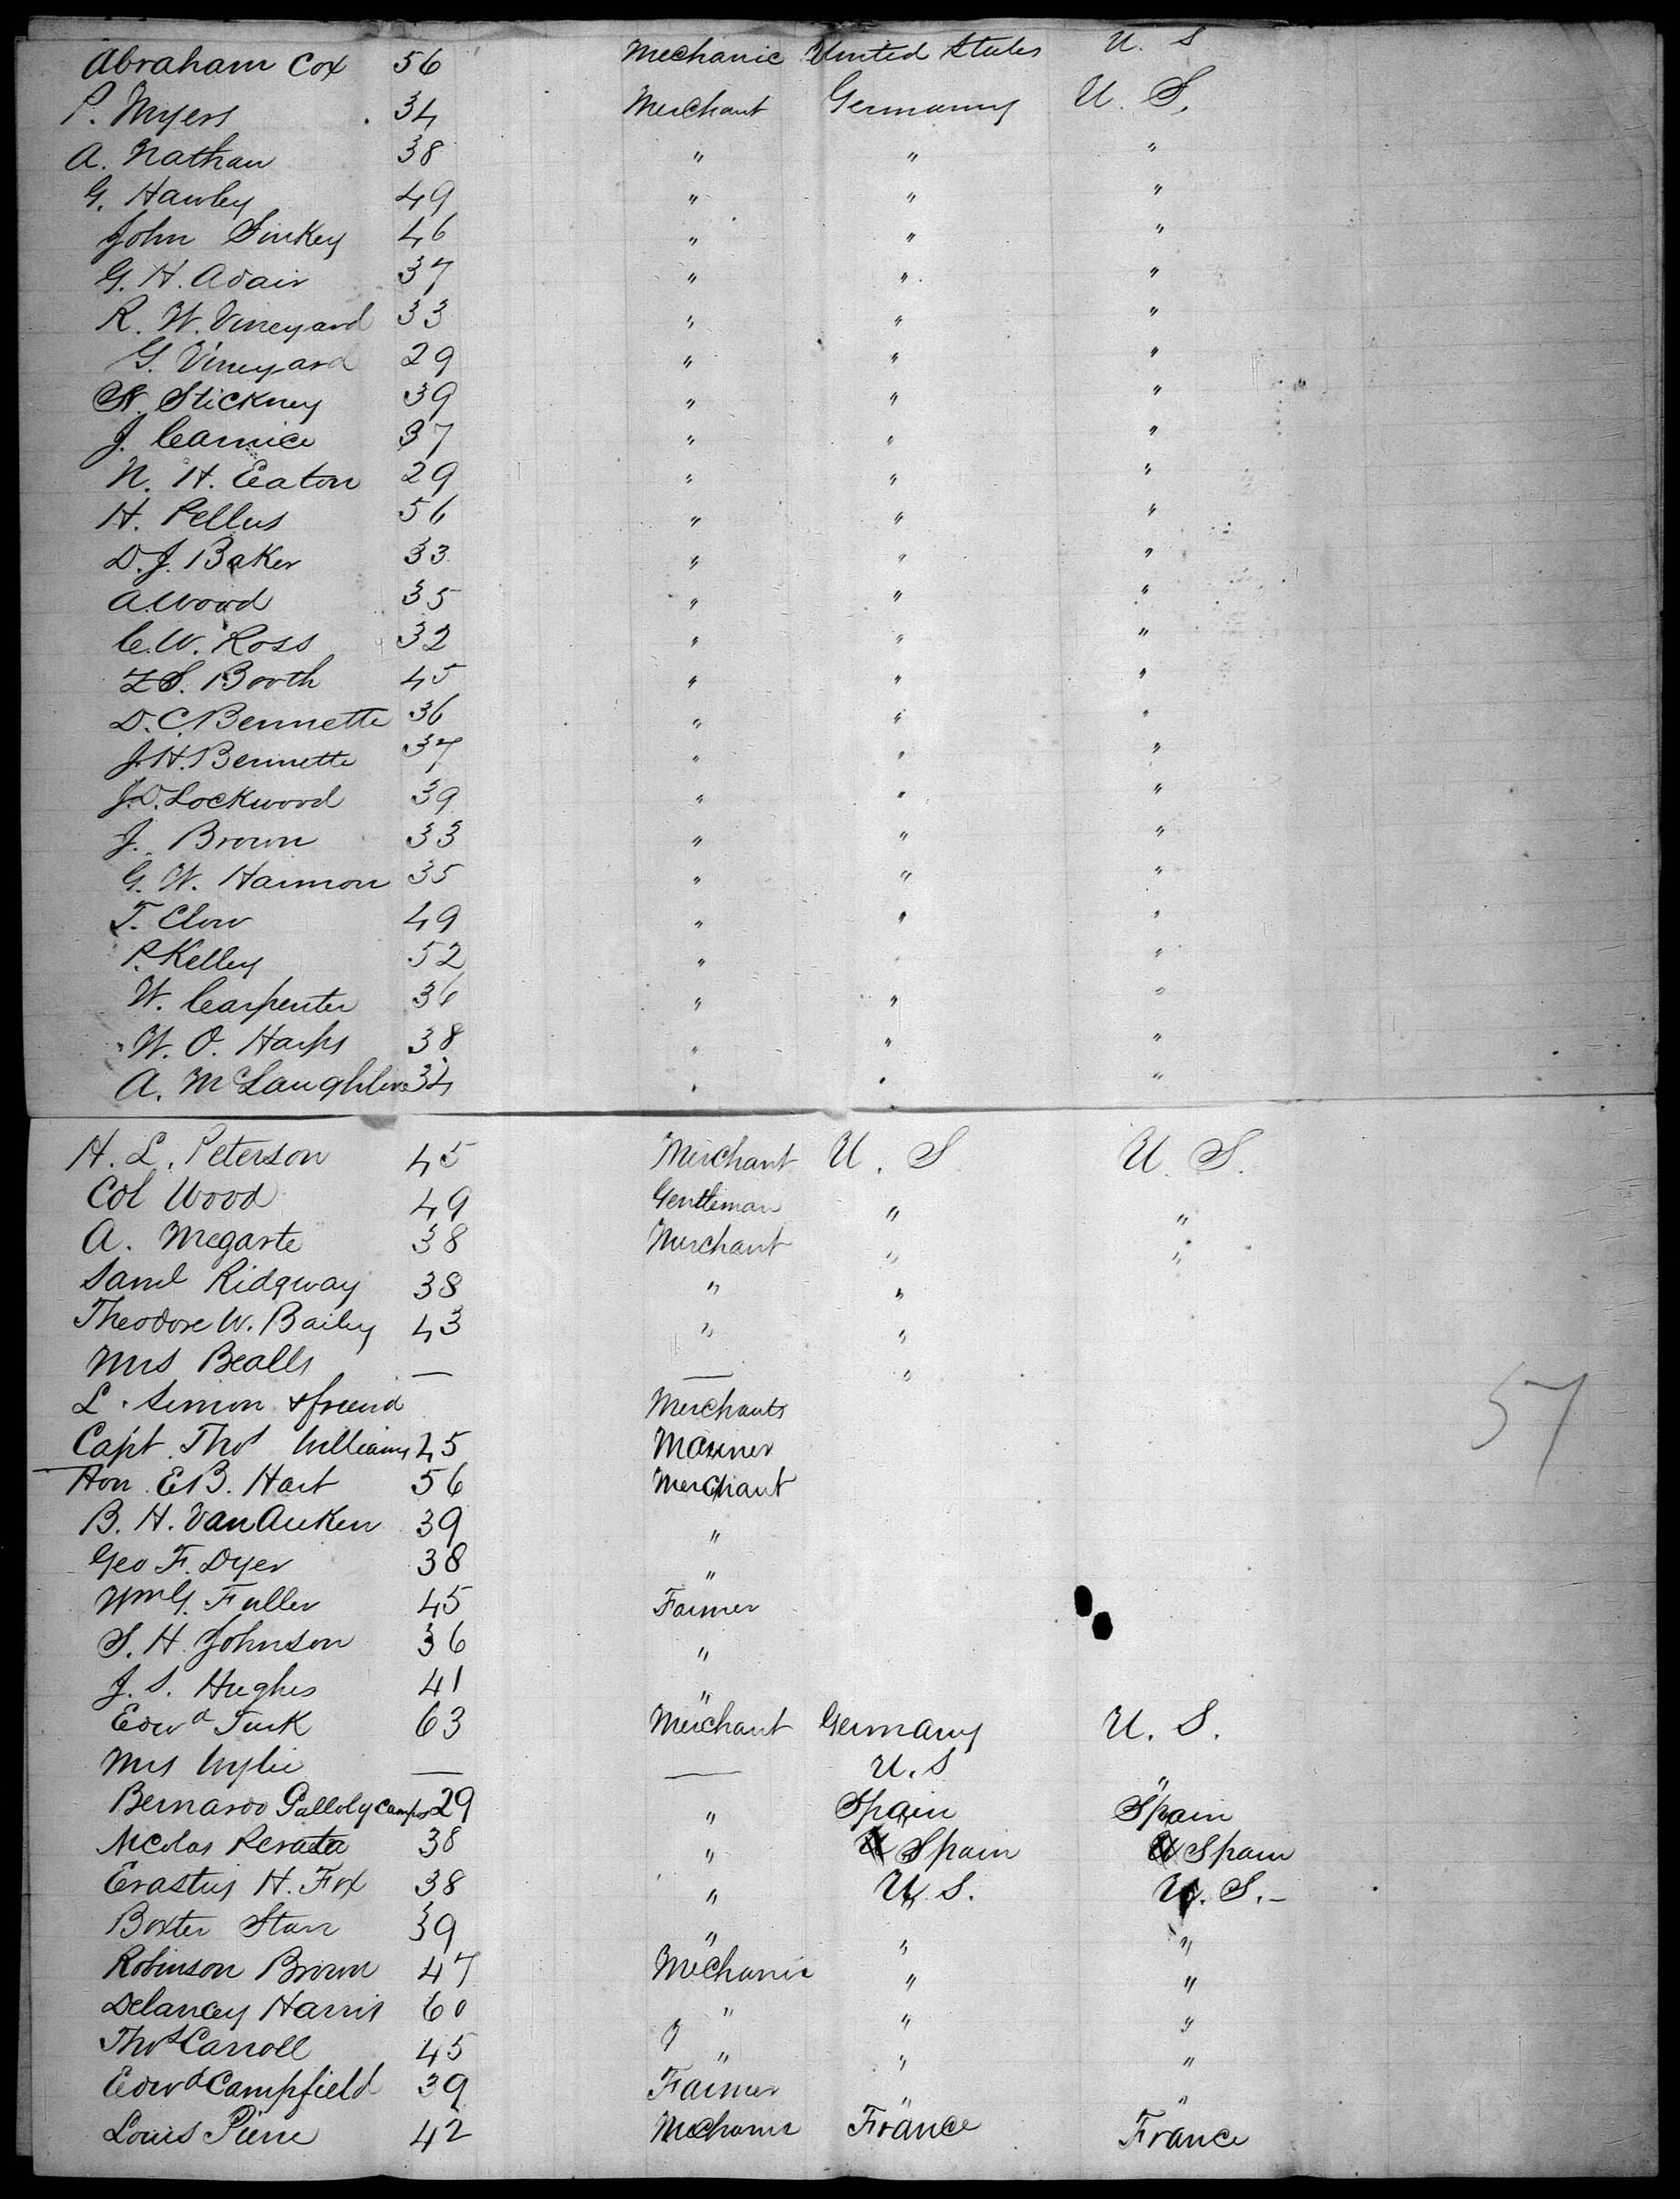 Abraham Cox 56 Mechanic United States U. S
P. Myers 34 Merchant Germany U. S.
A. Nathan 38 " " "
G. Hawley 49 " " "
John Sinkey 46 " " "
G. H. Adair 37 " " "
R. W. Vineyard 33 " " "
G. Vineyard 29 " " "
W. Stickney 39 " " "
J. Carnice 37 " " "
N. H. Eaton 29 " " "
H. Pellus 56 " " "
D. J. Baker 33 " " "
A. Wood 35 " " "
C. W. Ross 32 " " "
Z S. Booth 45 " " "
D. C. Bennette 36 " " "
J. H. Bennette 37 " " "
J. D. Lockwood 39 " " "
J. Brown 33 " " "
G. W. Harmon 35 " " "
T. Clow 49 " " "
P. Kelley 52 " "
W. Carpenter 36 " " "
W. O. Harps 38 " " "
A. McLaughlin 34 " " "
H. L. Peterson 45 Merchant U. S U. S.
Col Wood 49 Gentleman " "
A. Megarte 38 Merchant " "
Saml Ridgway 38 " "
Theodore W. Baily 43 " "
Mrs Bealls — — "
L. Simon & friend Merchants
57
Capt. Thos Williams 45 Mariner
Hon. E. B. Hart 56 Merchant
B. H. Van Auken 39 "
Geo F. Dyer 38 "
Wm G. Fuller 45 Farmer
S. H. Johnson 36 "
J. S. Hughes 41 "
Edwd Turk 63 Merchant Germany U. S.
Mrs Wylie — — U. S "
Bernardo Galloly Campos 29 " Spain Spain
Nicolas Peralta 38 " Spain Spain
Erastus H. Fox 38 " U. S. U. S. -
Boxter Starr 39 " " "
Robinson Brown 47 Mechanic " "
Delancey Harris 60 " " "
Thos Carroll 45 " " "
Edwd Campfield 39 Farmer " "
Louis Pierre 42 Mechanic France France